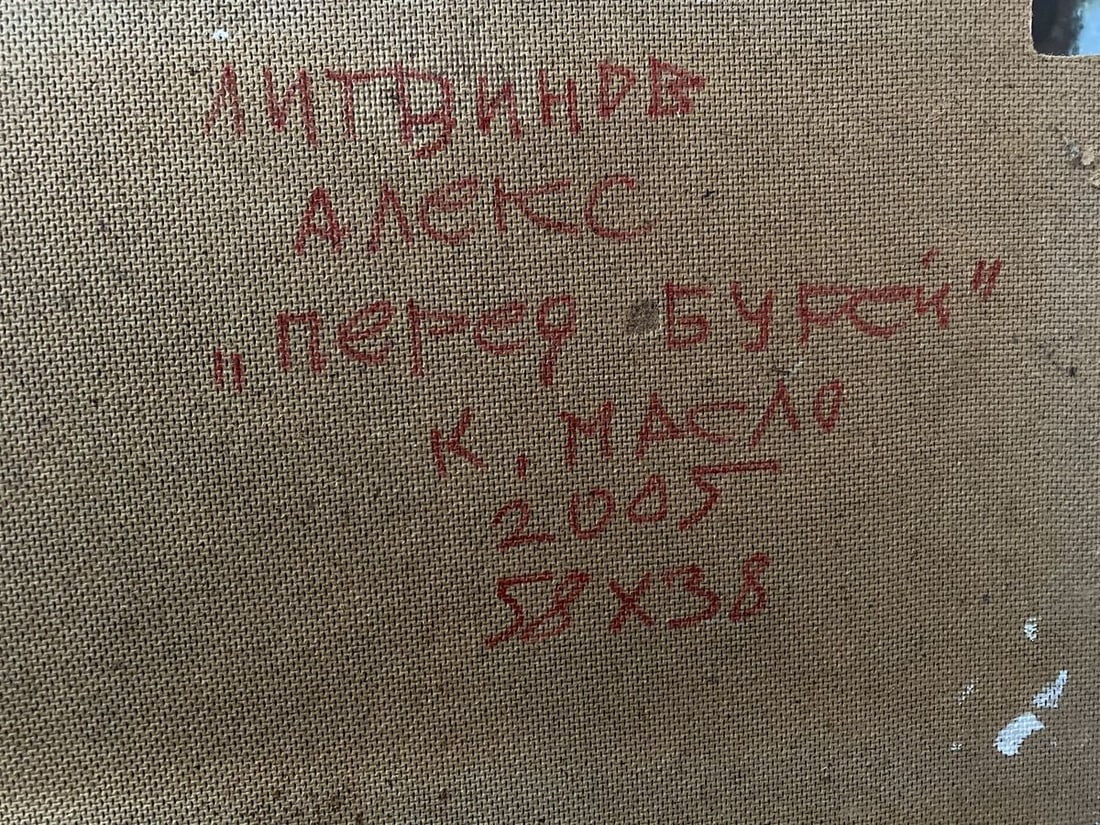 ЛИТВИНОВ
АЛЕКС
„ПЕРЕД БУРЕЙ"
К, МАСЛО
2005
58х38